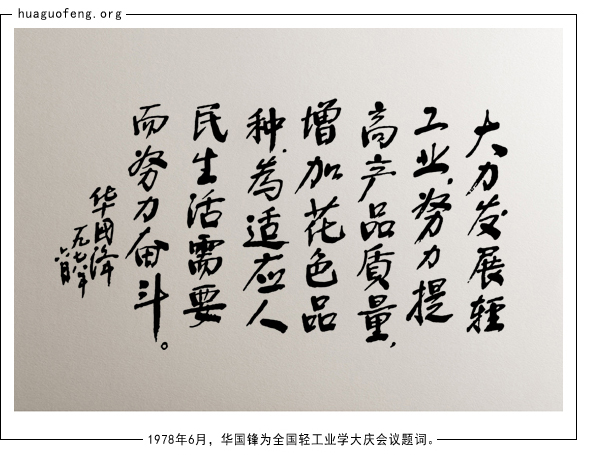 huaguofeng.org
大力发展輕
工业,努力提
高产品质量,
增加花色品
种,為适应人
民生活需要
而努力奋斗。
华国锋
一九七八年
六月
1978年6月，华国锋为全国轻工业学大庆会议题词。